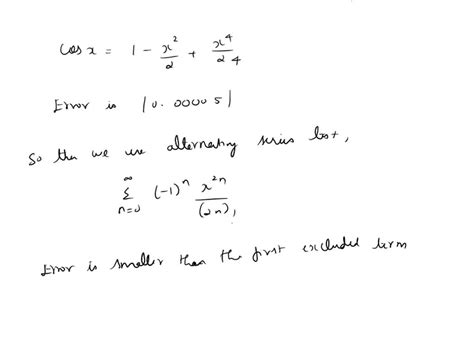 cos x = 1 - x²/2 + x⁴/24
Error is |0.00005|
So then we use alternating series test,
∞
Σ (-1)ⁿ x²ⁿ/(2n)!
n=0
Error is smaller than the first excluded term